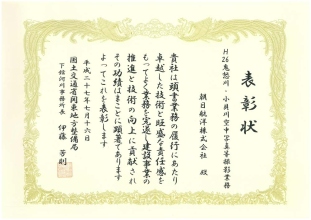 表彰状
H26鬼怒川・小貝川空中写真等撮影業務
朝日航洋株式会社 殿
貴社は頭書業務の履行にあたり
卓越した技術と旺盛な責任感を
もってよく業務を完遂し建設事業の
推進と技術の向上に貢献され
その功績はまことに顕著であります
よってこれを表彰します
平成二十七年七月十六日
国土交通省関東地方整備局
下館河川事務所長 伊藤 芳則